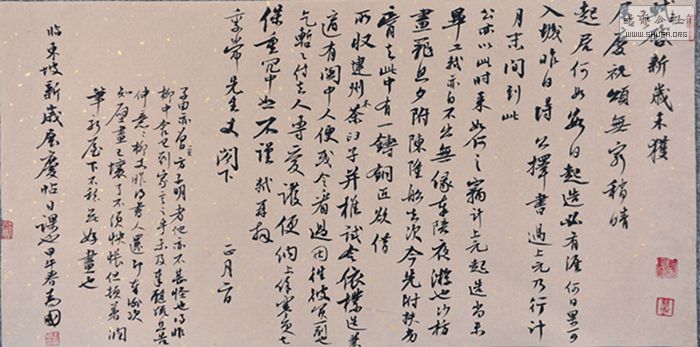 軾啓新歲未獲
展慶祝頌無窮稍晴
起居何如數日起造必有涯何日果可
入城昨日得公擇書過上元乃行計
月末間到此
公亦以此時来如何々竊計上元起造尚未
畢工軾亦自不出無緣奉陪夜遊也沙枋
畫籠旦夕附陳隆船去次今先附扶劣
膏去此中有一鑄銅匠欲借
所收建州木茶臼子并椎試令依樣造兼
適有閩中人便或令看過因往彼買一副也
乞暫付去人專愛護便納上餘寒更乞
保重冗中恕不謹軾再拜
季常先生丈閣下 正月二日
子由亦曾言方子明者他亦不甚怪也得非
柳中舍已到家言之乎未及奉慰疏且告
伸意々柳丈昨得書人還即奉謝次
知壁畫已壞了不須怏悵但頓着潤
筆新屋下不愁無好畫也
臨東坡新歲展慶帖日課也甲午春爲國